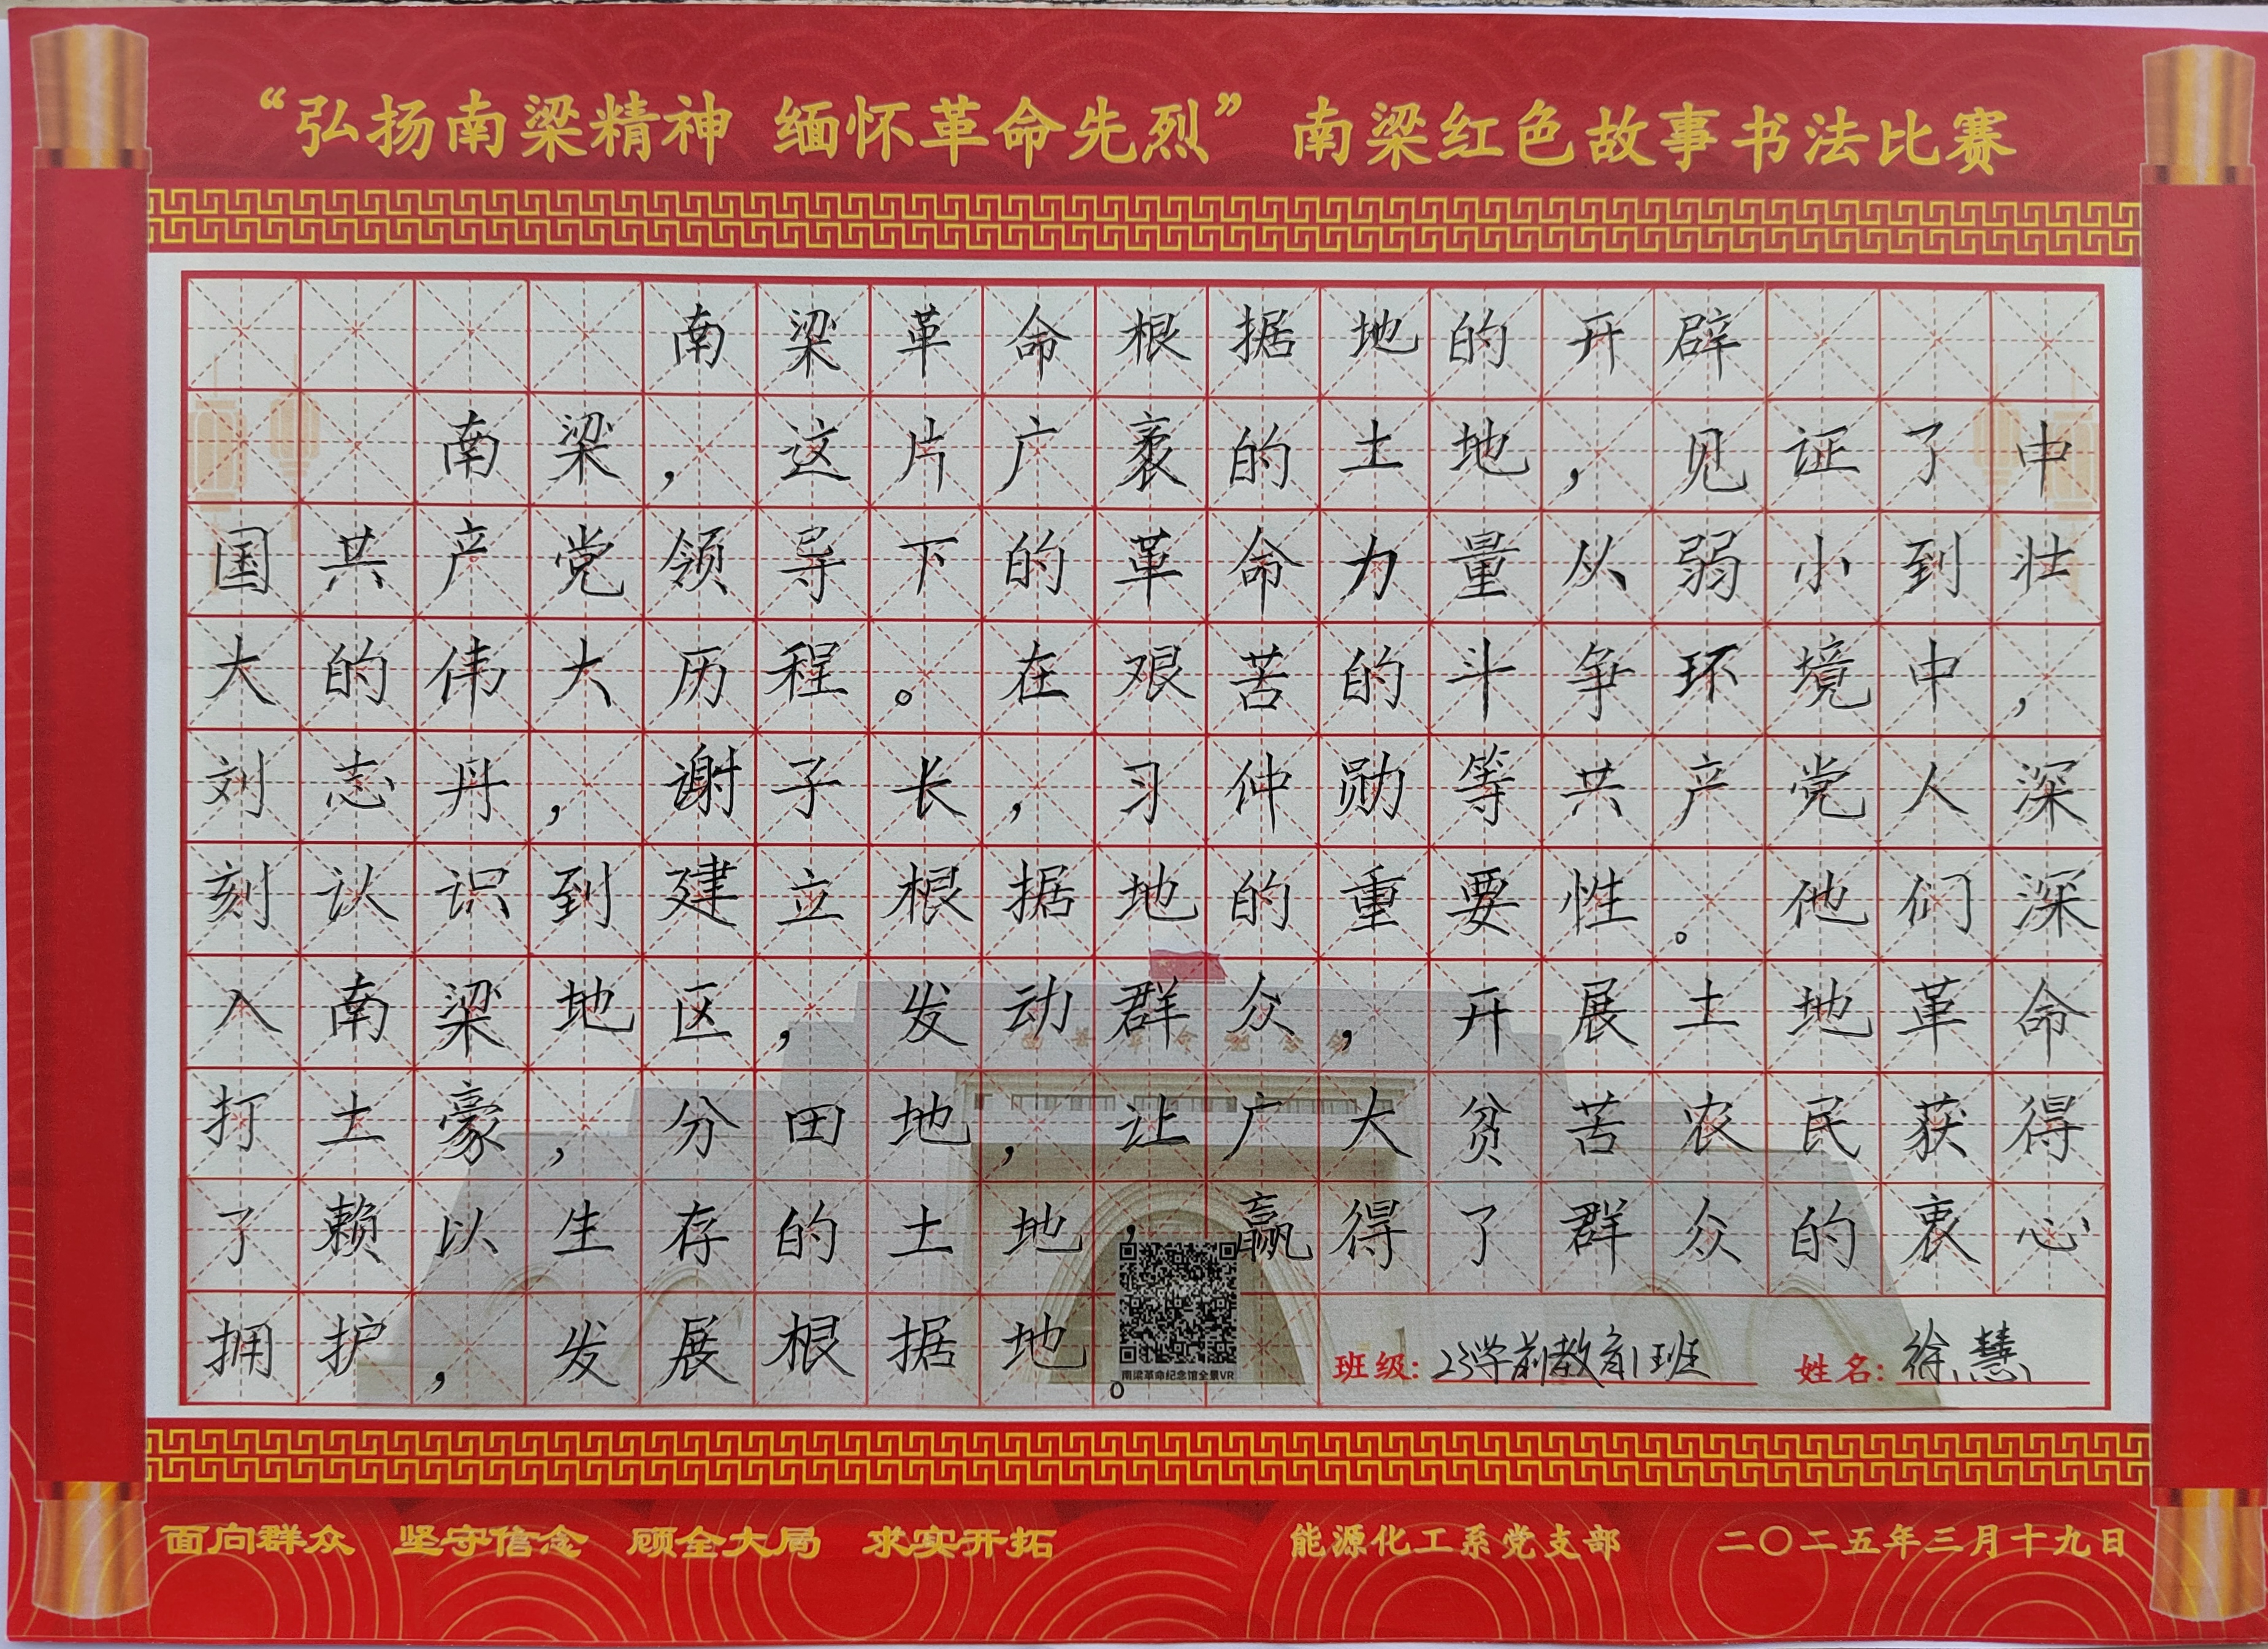 “弘扬南梁精神 缅怀革命先烈” 南梁红色故事书法比赛
南梁革命根据地的开辟
南梁，这片广袤的土地，见证了中
国共产党领导下的革命力量从弱小到壮
大的伟大历程。在艰苦的斗争环境中，
刘志丹，谢子长，习仲勋等共产党人深
刻认识到建立根据地的重要性。他们深
入南梁地区，发动群众，开展土地革命
打土豪，分田地，让广大贫苦农民获得
了赖以生存的土地，赢得了群众的衷心
拥护，发展根据地。
南梁革命纪念馆全景VR
班级：23学前教育1班 姓名：徐慧
面向群众 坚守信念 顾全大局 求实开拓 能源化工系党支部 二〇二五年三月十九日